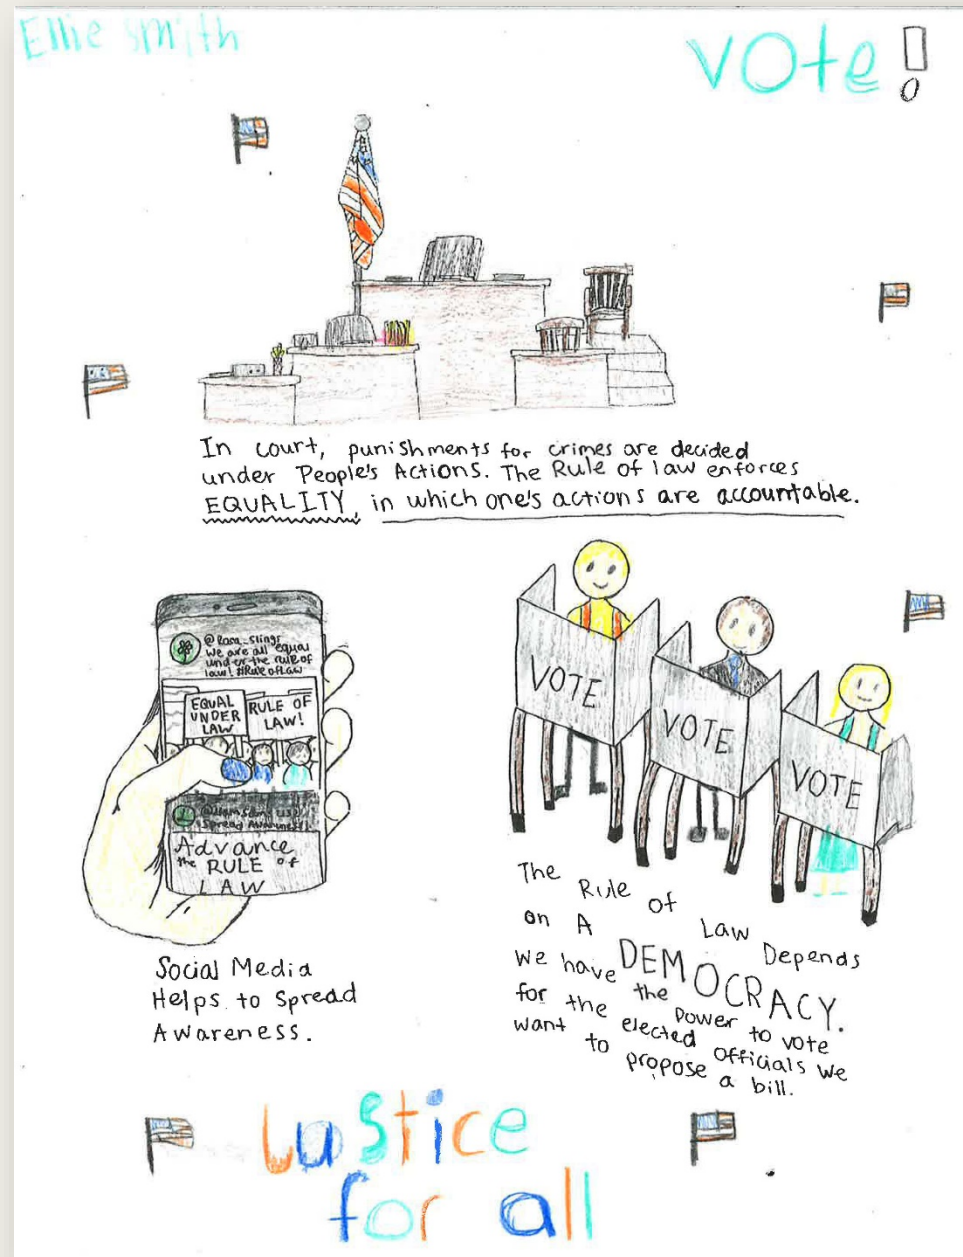 Ellie Smith
vote!
In court, punishments for crimes are decided
under People's Actions. The Rule of law enforces
EQUALITY, in which one's actions are accountable.
we are all equal
under the rule of
law! #RuleofLaw
EQUAL
UNDER
LAW
RULE OF
LAW!
Spread Awareness!
Advance
the RULE of
LAW
Social Media
Helps to Spread
Awareness.
VOTE
VOTE
VOTE
The Rule of Law Depends
on A DEMOCRACY.
we have the power to vote
for the elected officials we
want to propose a bill.
Justice
for all